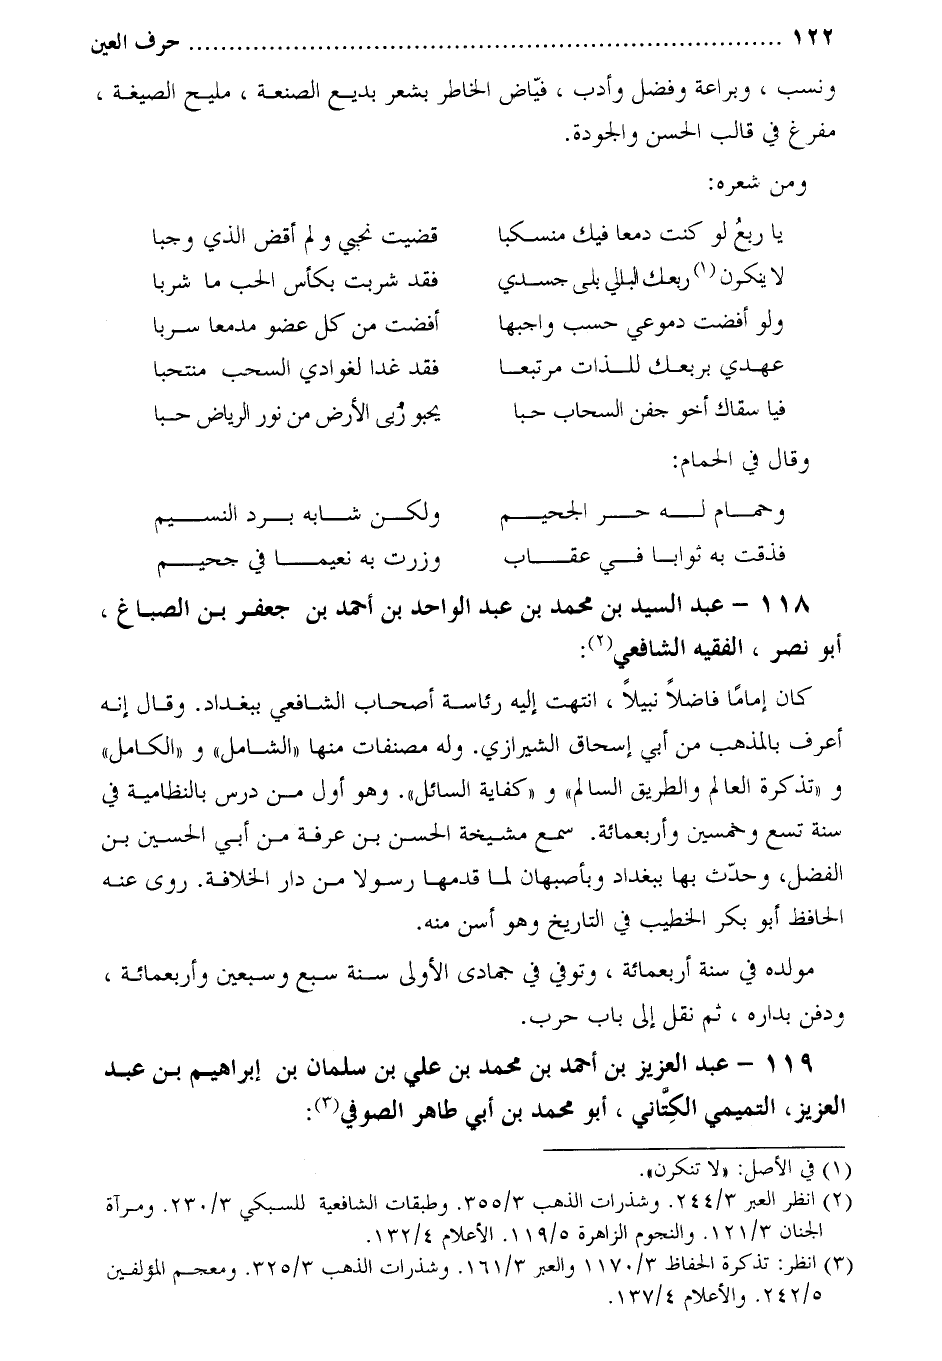 ١٢٢ ........................................................................ حرف العين
ونسب ، وبراعة وفضل وأدب ، فيّاض الخاطر بشعر بديع الصنعة ، مليح الصيغة ،
مفرغ في قالب الحسن والجودة.
ومن شعره:
يا ربعُ لو كنت دمعا فيك منسكبا قضيت نحبي ولم أقض الذي وجبا
لا ينكرن(١) ربعك البالي بلى جسدي فقد شربت بكأس الحب ما شربا
ولو أفضت دموعي حسب واجبها أفضت من كل عضو مدمعا سربا
عهدي بربعك للذات مرتبعا فقد غدا لغوادي السحب منتحبا
فيا سقاك أخو جفن السحاب حبا يحبو رُبى الأرض من نور الرياض حبا
وقال في الحمام:
وحمام له حر الجحيم ولكن شابه برد النسيم
فذقت به ثوابا في عقاب وزرت به نعيما في جحيم
١١٨ – عبد السيد بن محمد بن عبد الواحد بن أحمد بن جعفر بن الصباغ ،
أبو نصر ، الفقيه الشافعي(٢):
كان إمامًا فاضلاً نبيلاً ، انتهت إليه رئاسة أصحاب الشافعي ببغداد. وقال إنه
أعرف بالمذهب من أبي إسحاق الشيرازي. وله مصنفات منها «الشامل» و «الكامل»
و «تذكرة العالم والطريق السالم» و «كفاية السائل». وهو أول من درس بالنظامية في
سنة تسع وخمسين وأربعمائة. سمع مشيخة الحسن بن عرفة من أبي الحسين بن
الفضل، وحدّث بها ببغداد وبأصبهان لما قدمها رسولا من دار الخلافة. روى عنه
الحافظ أبو بكر الخطيب في التاريخ وهو أسن منه.
مولده في سنة أربعمائة ، وتوفي في جمادى الأولى سنة سبع وسبعين وأربعمائة ،
ودفن بداره ، ثم نقل إلى باب حرب.
١١٩ – عبد العزيز بن أحمد بن محمد بن علي بن سلمان بن إبراهيم بن عبد
العزيز، التميمي الكِتَّاني ، أبو محمد بن أبي طاهر الصوفي(٣):
(١) في الأصل: «لا تنكرن».
(٢) انظر العبر ٢٤٤/٣. وشذرات الذهب ٣٥٥/٣. وطبقات الشافعية للسبكي ٢٣٠/٣. ومرآة
الجنان ١٢١/٣. والنجوم الزاهرة ١١٩/٥. الأعلام ١٣٢/٤.
(٣) انظر: تذكرة الحفاظ ١١٧٠/٣ والعبر ١٦١/٣. وشذرات الذهب ٣٢٥/٣. ومعجم المؤلفين
٢٤٢/٥. والأعلام ١٣٧/٤.